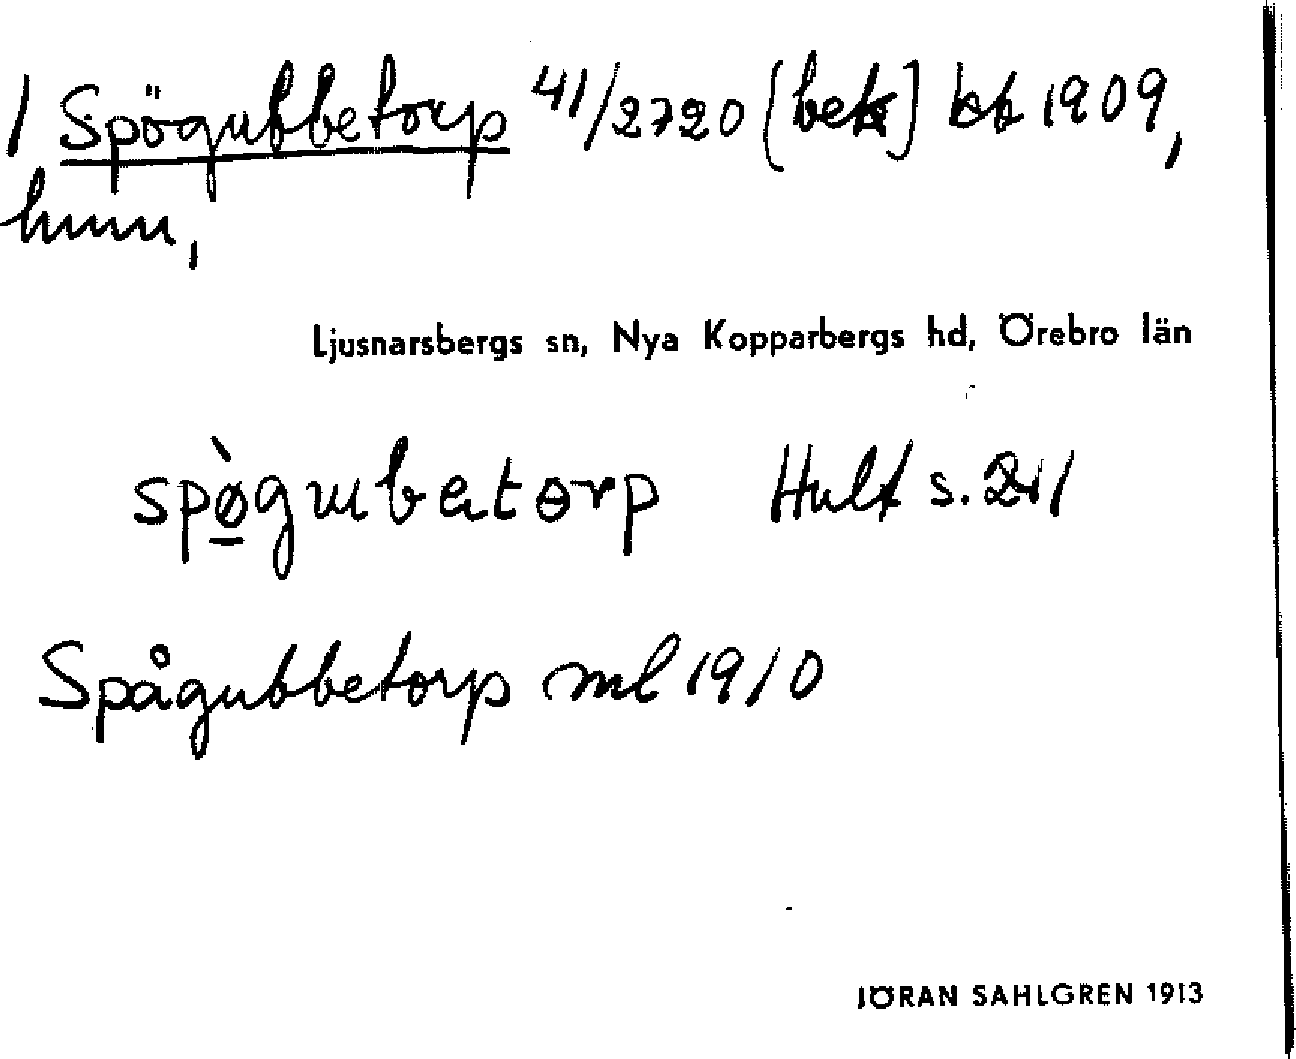 / Spögubbetorp 41/2720 [bek] kb 1909,
hmn,
Ljusnarsbergs sn, Nya Kopparbergs hd, Örebro län
spø̀gubatorp Hult s. 241
Spågubbetorp ml 1910
JÖRAN SAHLGREN 1913